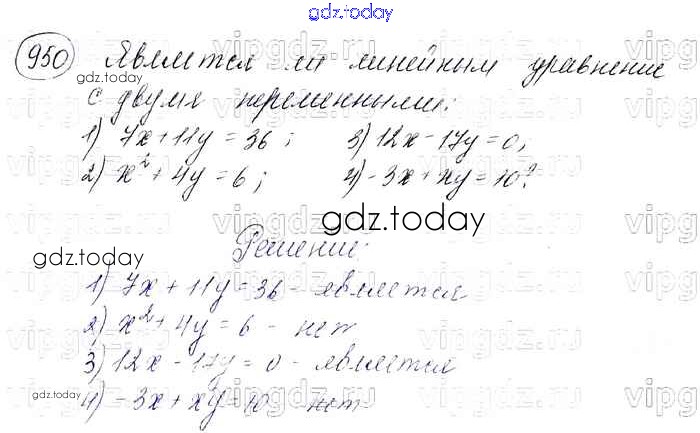 gdz.today
950 Является ли линейным уравнение
gdz.today
с двумя переменными:
1) 7x + 11y = 36; 3) 12x - 17y = 0;
2) x² + 4y = 6; 4) -3x + xy = 10?
gdz.today
Решение:
gdz.today
1) 7x + 11y = 36 - является
2) x² + 4y = 6 - нет
3) 12x - 17y = 0 - является
gdz.today
4) -3x + xy = 10 нет
gdz.today